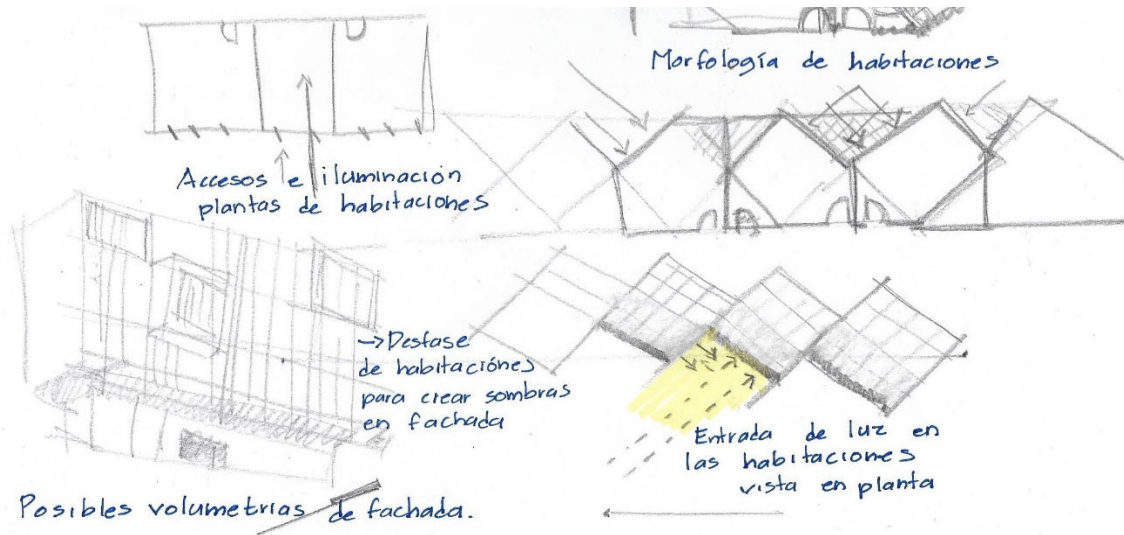 Morfología de habitaciones
Accesos e iluminación
plantas de habitaciones
→Desfase
de habitaciónes
para crear sombras
en fachada
Entrada de luz en
las habitaciones
vista en planta
Posibles volumetrias de fachada.